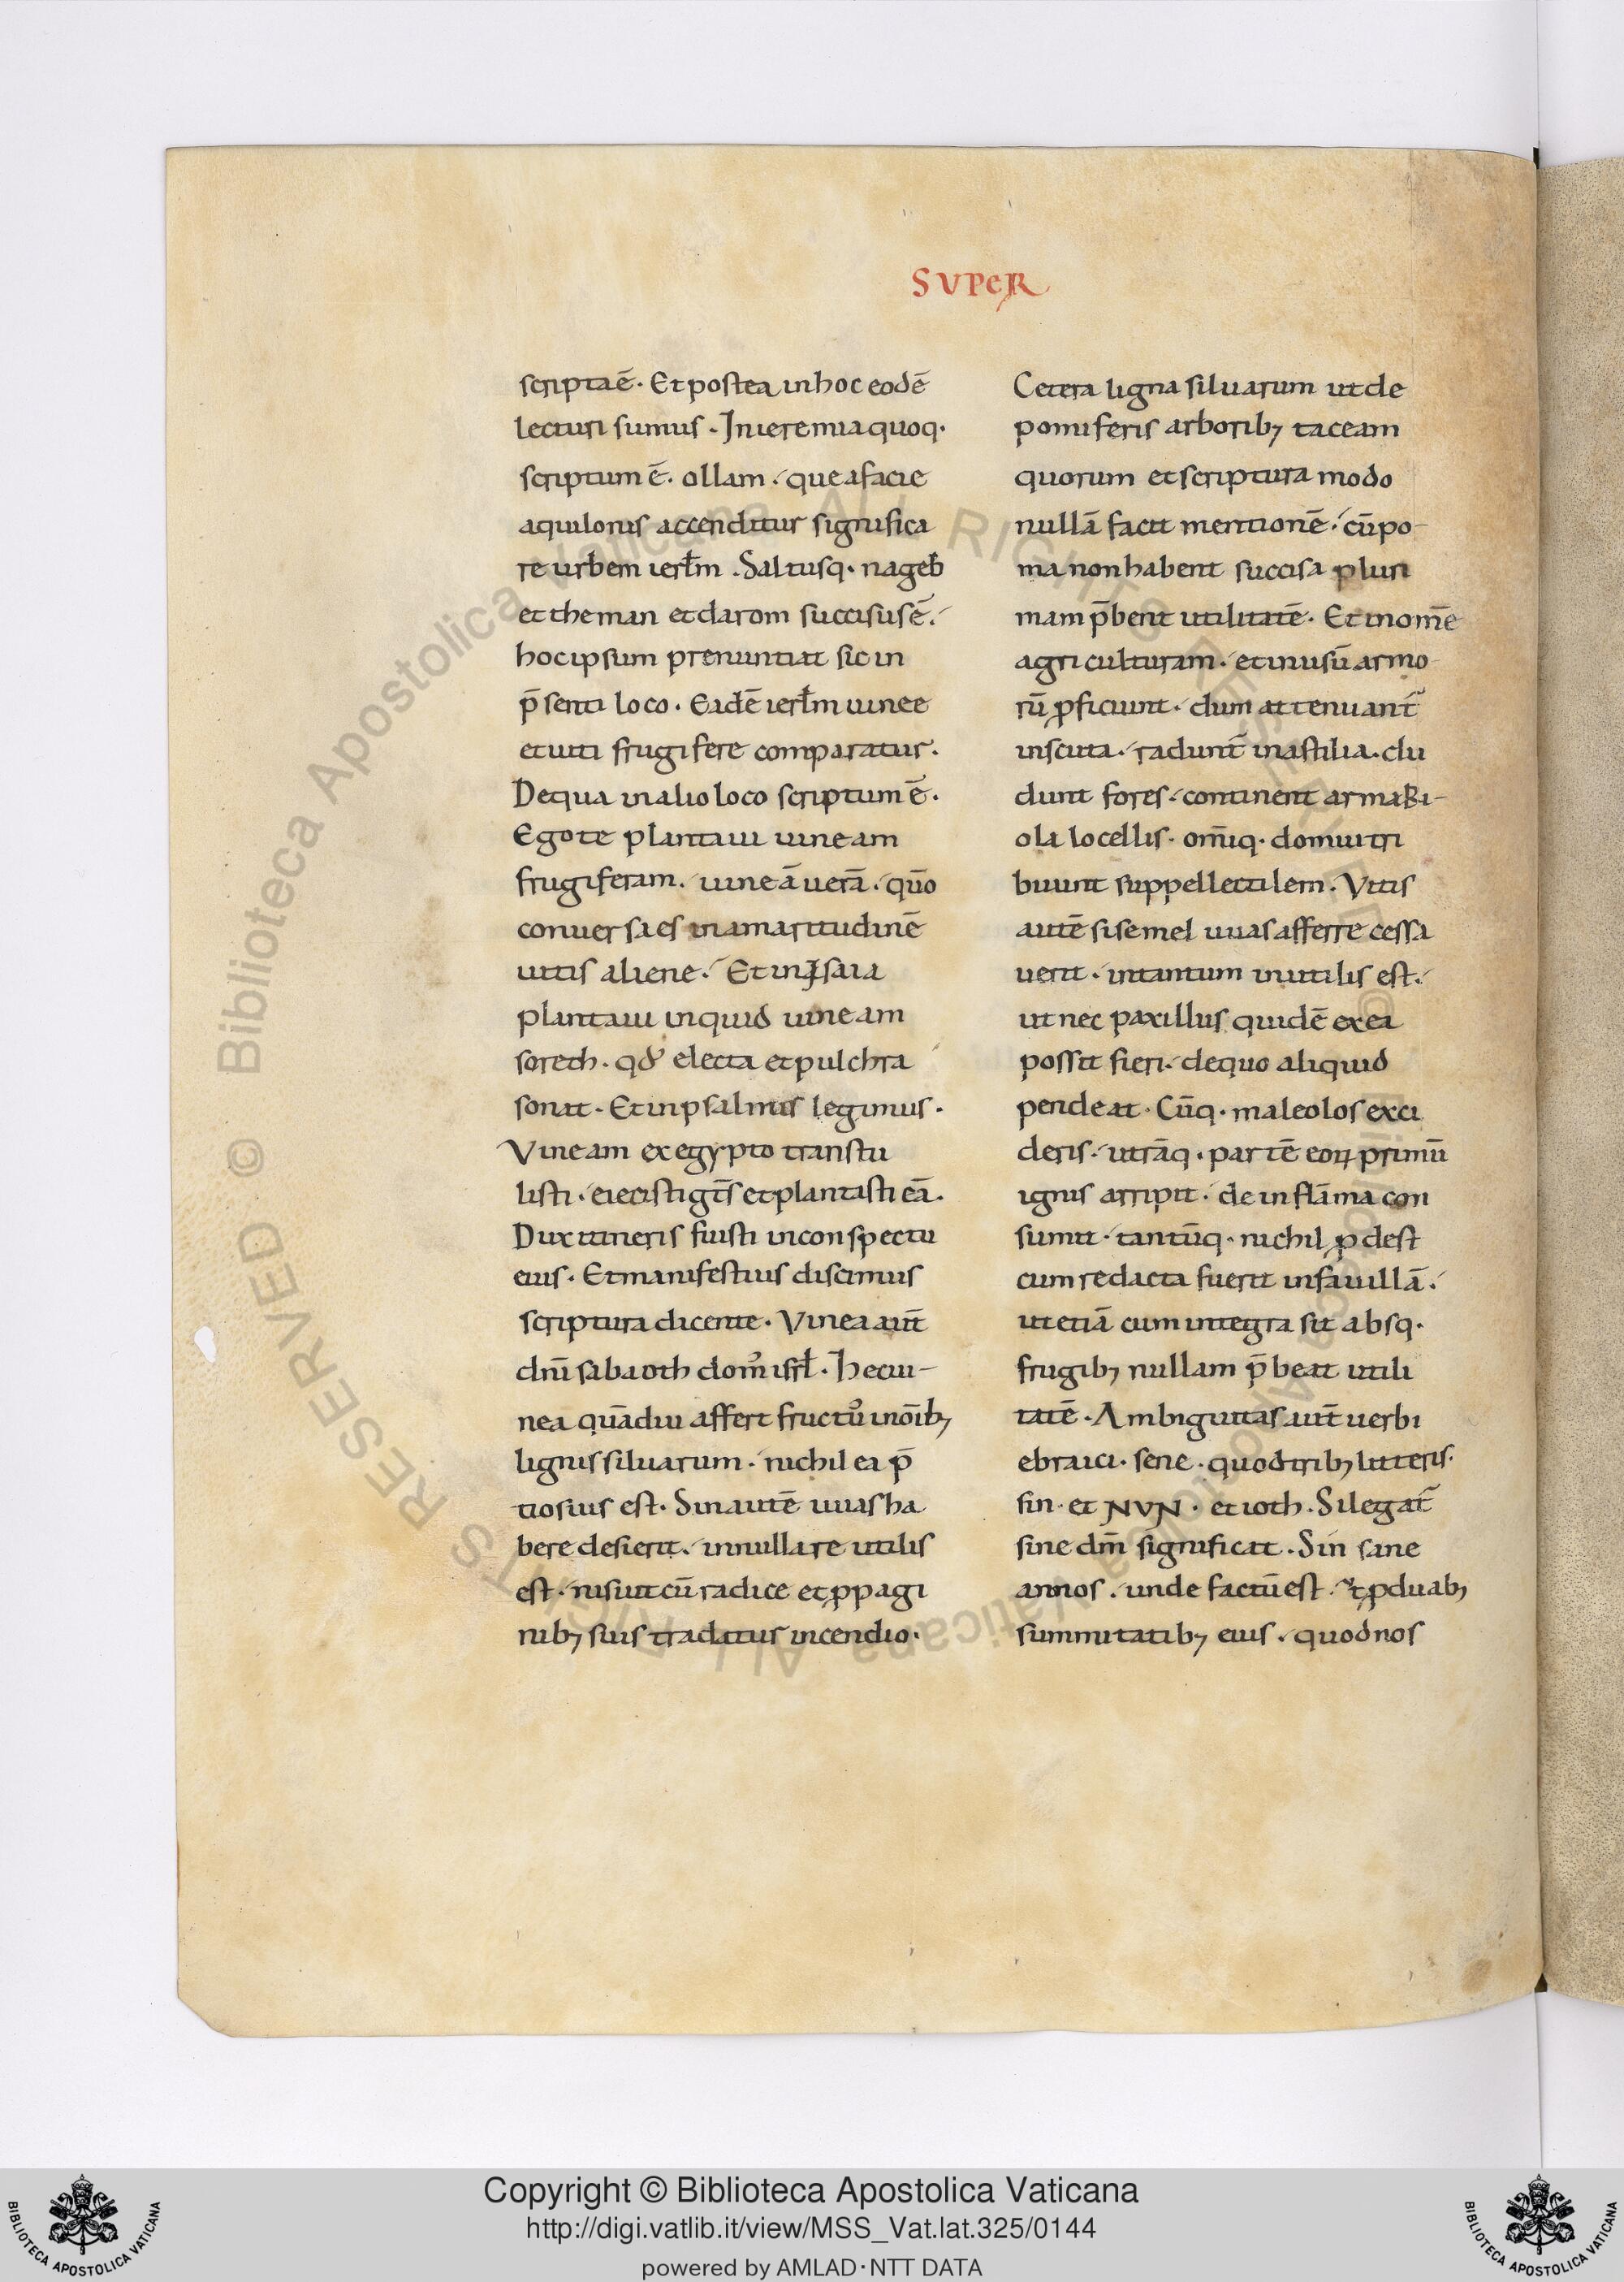 SVPER
scripta ē. Et postea in hoc eodē
lecturi sumus. In ieremia quoq.
scriptum ē. ollam. que a facie
aquilonis accenditur significa
re urbem ierl̄m. Saltusq. nageb
et theman et darom succisus ē.
hoc ipsum prenuntiat sic in
p̄senti loco. Eidē ierl̄m uinee
et uiti frugifere comparatur.
De qua in alio loco scriptum ē.
Ego te plantaui uineam
frugiferam. uineā uerā. quō
conuersa es in amaritudinē
uitis aliene. Et in Isaia
plantaui inquid uineam
sorech. qđ electa et pulchra
sonat. Et in psalmis legimus.
Vineam ex egypto transtu
listi. eiecisti gt̄s et plantasti eā.
Dux itineris fuisti in conspectu
eius. Et manifestius discimus
scriptura dicente. Vinea aut̄
dn̄i sabaoth dom᷒ isrl̄. Hec ui-
nea quādiu affert fructū in oīb;
lignis siluarum. nichil ea p̄
tiosius est. Sin autē uuas ha
bere desierit. in nulla re utilis
est. nisi ut cū radice et ꝓpagi
nib; suis tradatur incendio.
Cetera ligna siluarum ut de
pomiferis arborib; taceam
quorum et scriptura modo
nullā facit mentionē. cū po-
ma non habent succisa pluri
mam p̄bent utilitatē. Et in om̄e
agriculturam. et in usū armo
rū ꝓficiunt. dum attenuant̄
in scuta. radunt̄ in astilia. clu
dunt fores. continent armari-
ola locellis. om̄iq. domui tri
buunt suppellectilem. Vitis
autē si semel uuas afferre cessa
uerit. in tantum inutilis est.
ut nec paxillus quidē ex ea
possit fieri. de quo aliquid
pendeat. Cūq. maleolos exci
deris. utrāq. partē eoꝝ primū
ignis arripit. dein flāma con
sumit. tantūq. nichil ꝓdest
cum redacta fuerit in fauillā.
ut etiā cum integra sit absq.
frugib; nullam p̄beat utili
tatē. Ambiguitas aut̄ uerbi
ebraici. sene. quod trib; litteris.
sin. et NVN. et ioth. Si legat̄
sine dm̄ significat. Sin sane
annos. unde factū est. ut ꝓ duab;
summitatib; eius. quod nos
Copyright © Biblioteca Apostolica Vaticana
http://digi.vatlib.it/view/MSS_Vat.lat.325/0144
powered by AMLAD·NTT DATA
BIBLIOTECA APOSTOLICA VATICANA
BIBLIOTECA APOSTOLICA VATICANA